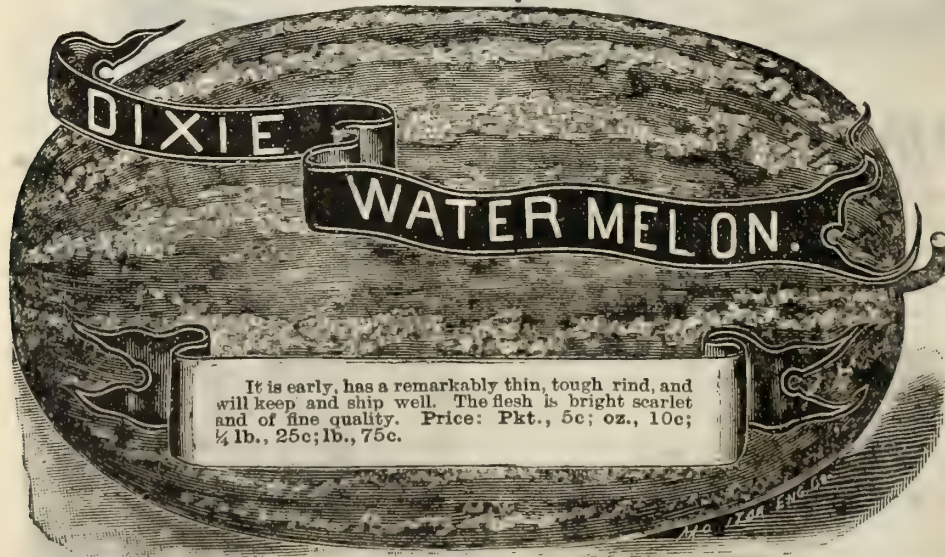 DIXIE
WATER MELON.
It is early, has a remarkably thin, tough rind, and
will keep and ship well. The flesh is bright scarlet
and of fine quality. Price: Pkt., 5c; oz., 10c;
¼ lb., 25c; lb., 75c.